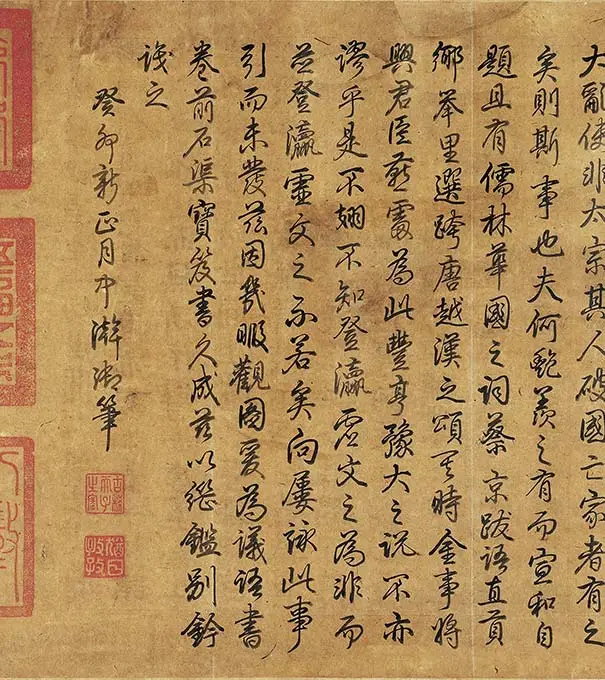 大亂使非太宗其人破國亡家者有之
矣則斯事也夫何艷羨之有而宣和自
題且有儒林華國之詞蔡京跋語直貢
鄉舉里選跨唐越漢之頌其時金事將
興君臣燕為此豐亨豫大之說不亦
謬乎是不翅不知登瀛虛文之為非而
並登瀛虛文之不若矣向屢詠此事
引而未發茲因幾暇觀圖爰為議語書
卷前石渠寶笈書久成茲以繼鑑別鈐
識之
癸卯新正月中澣御筆
古稀天子之寶
猶日孜孜